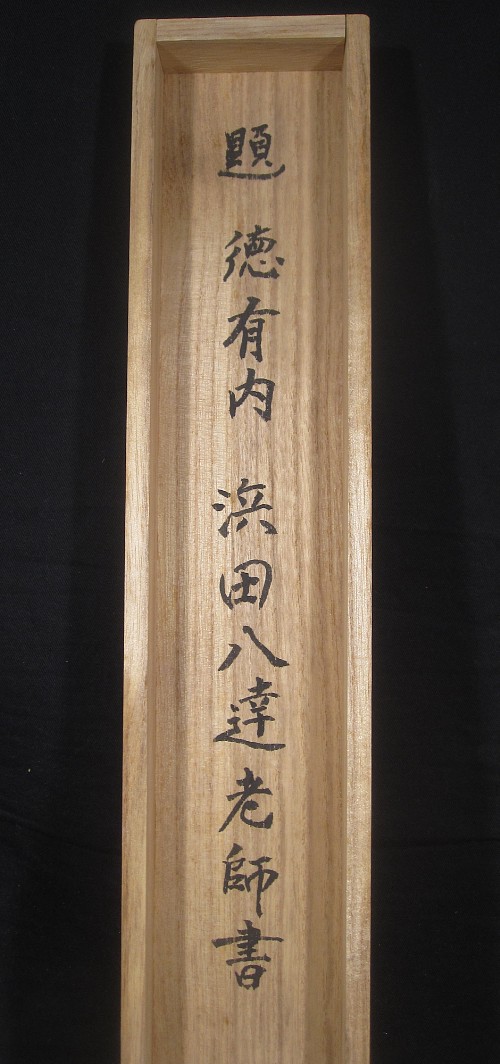 題 徳有内 浜田八達老師書